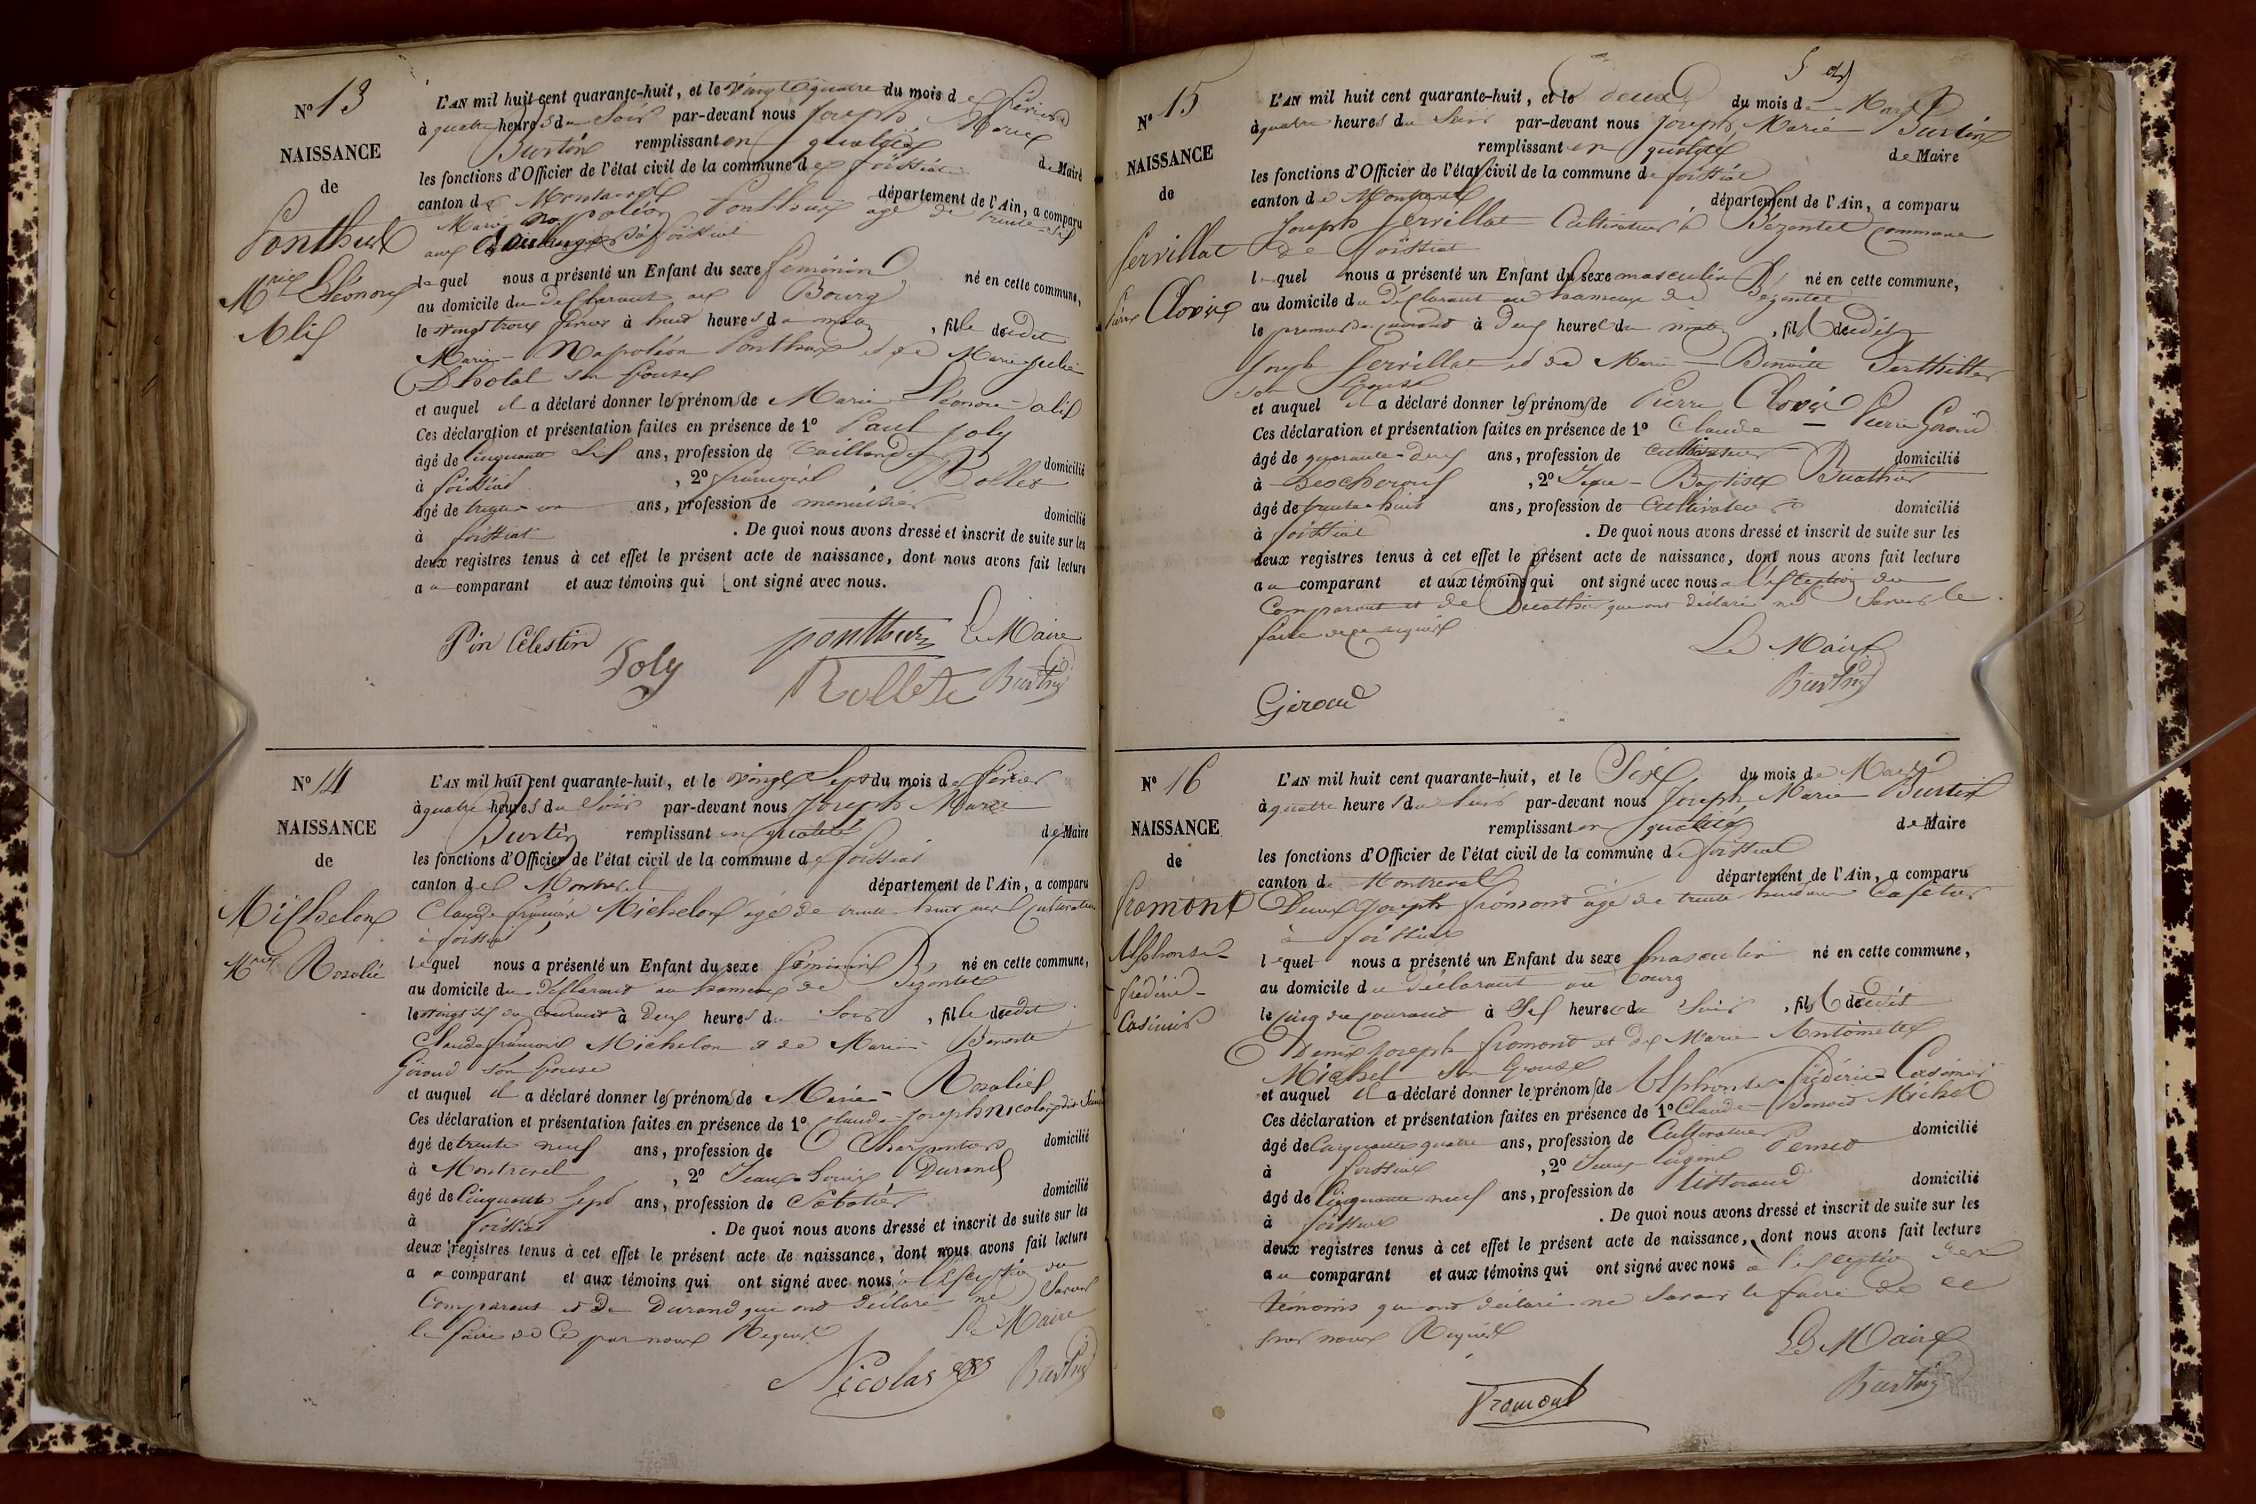 N° 13
NAISSANCE
de
Ponthus
Mrie Eléonore
Alix
L'AN mil huit cent quarante-huit, et le vingt quatre du mois de février
à quatre heures du Soir par-devant nous Joseph Marie
Burtin remplissant en qualité de Maire
les fonctions d'Officier de l'état civil de la commune de foissiat
canton de Montrevel département de l'Ain, a comparu
Marie Napoléon Ponthus agé de trente six
ans à foissiat
lequel nous a présenté un Enfant du sexe féminin né en cette commune,
au domicile du declarant au Bourg
le vingt trois à huit heures du matin, fille dudit
Marie Napoléon Ponthus et de Marie Julie
son épouse
et auquel il a déclaré donner les prénoms de Marie Eléonore alix
Ces déclaration et présentation faites en présence de 1° Paul Joly
âgé de cinquante six ans, profession de Taillandier domicilié
à foissiat, 2° françois Rollet
âgé de ans, profession de menuisier domicilié
à foissiat. De quoi nous avons dressé et inscrit de suite sur les
deux registres tenus à cet effet le présent acte de naissance, dont nous avons fait lecture
au comparant et aux témoins qui ont signé avec nous.
Pin Célestin Joly ponthus Le Maire
Rollet Burtin
N° 14
NAISSANCE
de
Michelon
Mrie Rosalie
L'AN mil huit cent quarante-huit, et le vingt Sept du mois de février
à quatre heures du Soir par-devant nous Joseph Marie
Burtin remplissant en qualité de Maire
les fonctions d'Officier de l'état civil de la commune de foissiat
canton de Montrevel département de l'Ain, a comparu
Claude françois Michelon agé de trente huit ans Cultivateur
à foissiat
lequel nous a présenté un Enfant du sexe féminin né en cette commune,
au domicile du déclarant au hameau de Bézentet
le vingt six du Courant à deux heures du Soir, fille dudit
Claude françois Michelon et de Marie Benoite
Giroud son épouse
et auquel il a déclaré donner les prénoms de Marie Rosalie
Ces déclaration et présentation faites en présence de 1° Claude Joseph Nicolas dit
âgé de trente neuf ans, profession de Charpentier domicilié
à Montrevel, 2° Jean Louis Durand
âgé de Cinquante Sept ans, profession de Sabotier domicilié
à foissiat. De quoi nous avons dressé et inscrit de suite sur les
deux registres tenus à cet effet le présent acte de naissance, dont nous avons fait lecture
au comparant et aux témoins qui ont signé avec nous à l'exception du
Comparant et de Durand qui ont déclaré ne Savoir
le faire de Ce par nous Requis Le Maire
Nicolas Burtin
N° 15
NAISSANCE
de
Servillat
Pierre Clovis
L'AN mil huit cent quarante-huit, et le deux du mois de Mars
à quatre heures du Soir par-devant nous Joseph Marie Burtin
remplissant en qualité de Maire
les fonctions d'Officier de l'état civil de la commune de foissiat
canton de Montrevel département de l'Ain, a comparu
Joseph Servillat Cultivateur à Bézentet commune
de foissiat
lequel nous a présenté un Enfant du sexe masculin né en cette commune,
au domicile du déclarant au hameau de Bezentet
le premier du courant à deux heures du matin, fils dudit
Joseph Servillat et de Marie Benoite Berthillier
son épouse
et auquel il a déclaré donner les prénoms de Pierre Clovis
Ces déclaration et présentation faites en présence de 1° Claude Pierre Giroud
âgé de quarante deux ans, profession de cultivateur domicilié
à, 2° Jean Baptiste Buathier
âgé de trente huit ans, profession de Cultivateur domicilié
à foissiat. De quoi nous avons dressé et inscrit de suite sur les
deux registres tenus à cet effet le présent acte de naissance, dont nous avons fait lecture
au comparant et aux témoins qui ont signé avec nous à l'exception du
Comparant et de Buathier qui ont déclaré ne Savoir le
faire de ce requis
Le Maire
Burtin
Giroud
N° 16
NAISSANCE
de
fromont
Alphonse
frédéric
Casimir
L'AN mil huit cent quarante-huit, et le Six du mois de Mars
à quatre heures du Soir par-devant nous Joseph Marie Burtin
remplissant en qualité de Maire
les fonctions d'Officier de l'état civil de la commune de foissiat
canton de Montrevel département de l'Ain, a comparu
Denis Joseph fromont agé de trente huit ans Cafetier
à foissiat
lequel nous a présenté un Enfant du sexe masculin né en cette commune,
au domicile du déclarant au bourg
le Cinq du courant à Six heures du Soir, fils dudit
Denis Joseph fromont et de Marie Antoinette
Michel son épouse
et auquel il a déclaré donner les prénoms de Alphonse frédéric Casimir
Ces déclaration et présentation faites en présence de 1° Claude Benoit Michel
âgé de Cinquante quatre ans, profession de Cultivateur domicilié
à foissiat, 2° Jean Eugène Perret
âgé de Cinquante neuf ans, profession de tisserand domicilié
à foissiat. De quoi nous avons dressé et inscrit de suite sur les
deux registres tenus à cet effet le présent acte de naissance, dont nous avons fait lecture
au comparant et aux témoins qui ont signé avec nous à l'exception des
témoins qui ont déclaré ne Savoir le faire de ce
par nous Requis
Le Maire
Burtin
Fromont